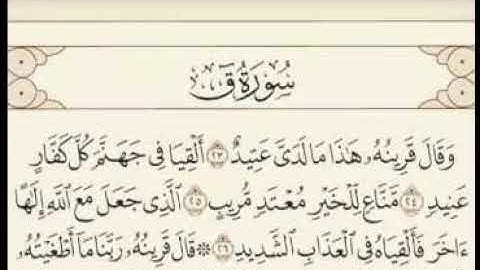 سُورَةُ قٓ
وَقَالَ قَرِينُهُۥ هَٰذَا مَا لَدَىَّ عَتِيدٌ ٢٣ أَلْقِيَا فِى جَهَنَّمَ كُلَّ كَفَّارٍ
عَنِيدٍ ٢٤ مَّنَّاعٍ لِّلْخَيْرِ مُعْتَدٍ مُّرِيبٍ ٢٥ ٱلَّذِى جَعَلَ مَعَ ٱللَّهِ إِلَٰهًا
ءَاخَرَ فَأَلْقِيَاهُ فِى ٱلْعَذَابِ ٱلشَّدِيدِ ٢٦ ۞ قَالَ قَرِينُهُۥ رَبَّنَا مَآ أَطْغَيْتُهُۥ